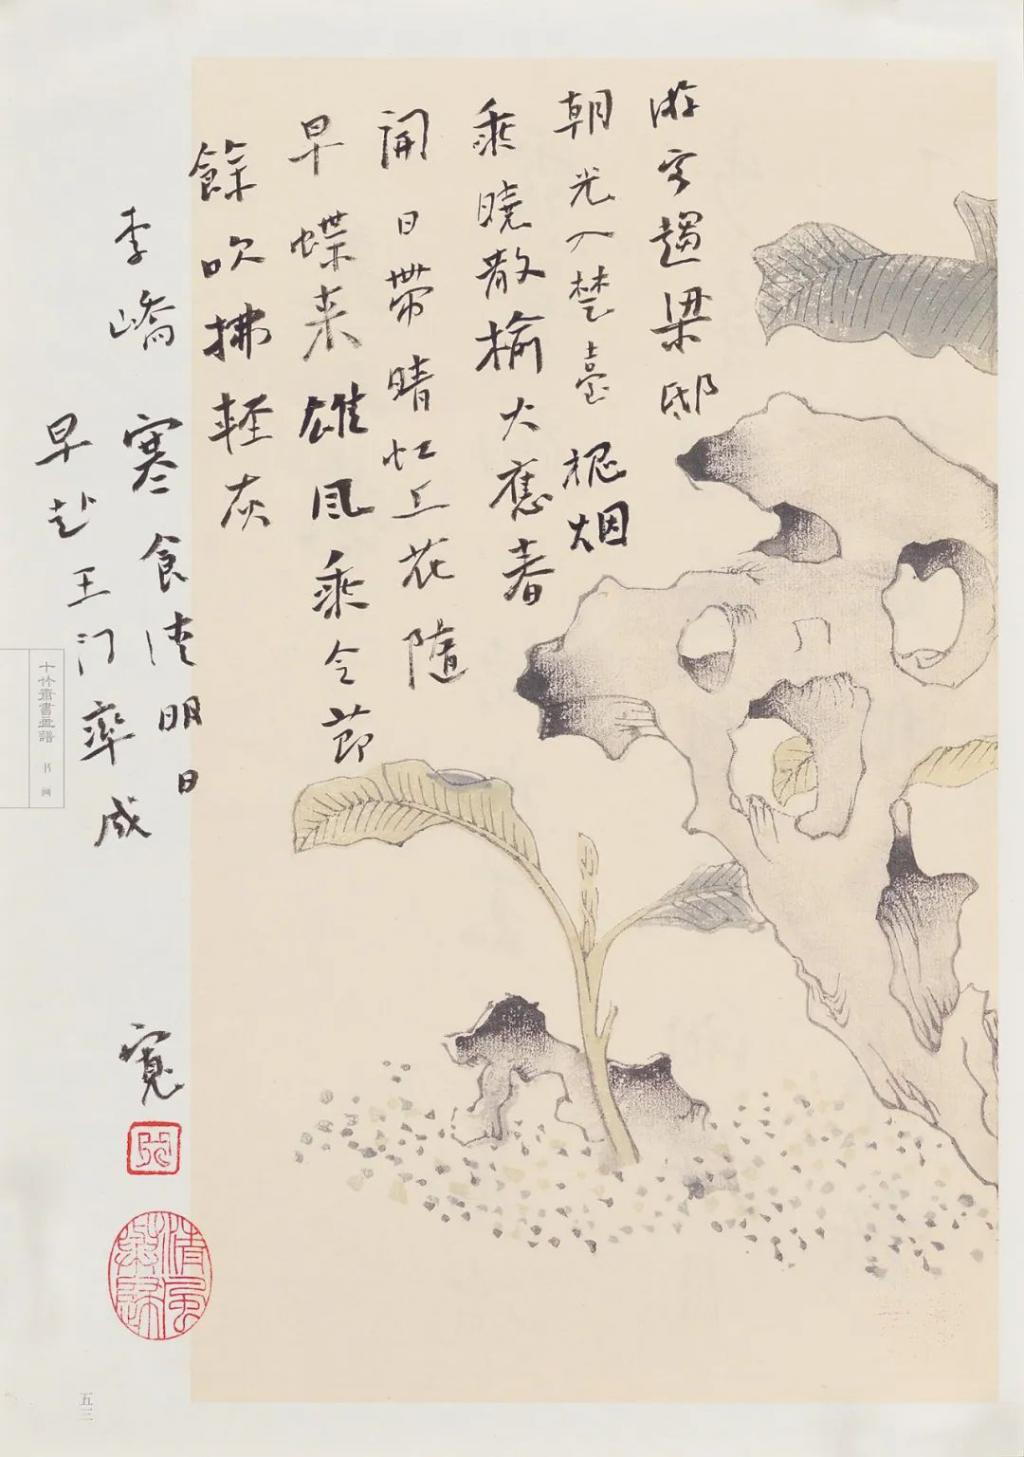 游客趨梁邸
朝光入楚臺槐烟
乘曉散榆火應春
開日帶晴虹上花隨
早蝶来雄風乘令節
餘吹拂輕灰
李嶠寒食清明日
早赴王門率成
寬
清風
十竹齋書畫譜 书画
五三